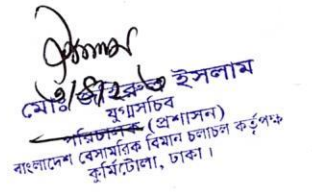 মোঃ ইসলাম
যুগ্মসচিব
পরিচালক (প্রশাসন)
বাংলাদেশ বেসামরিক বিমান চলাচল কর্তৃপক্ষ
কুর্মিটোলা, ঢাকা।